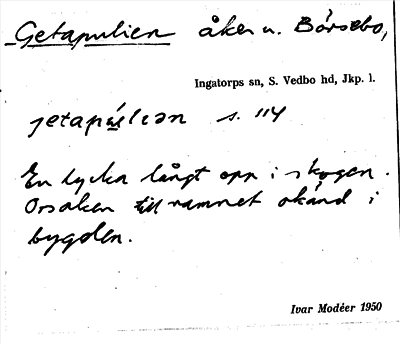 Getapulien åker u. Börsebo,
Ingatorps sn, S. Vedbo hd, Jkp. l.
jetapúliən s. 114
En lycka långt opp i skogen.
Orsaken till namnet okänd i
bygden.
Ivar Modéer 1950